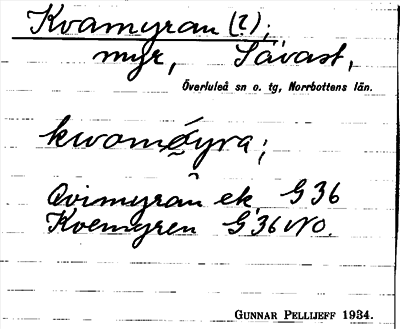 Kvamyran (?);
myr, Sävast,
Överluleå sn o. tg, Norrbottens län.
kwamǿyra;
Qvimyran ek. G 36
Kvemyren G 36 NO.
GUNNAR PELLIJEFF 1934.